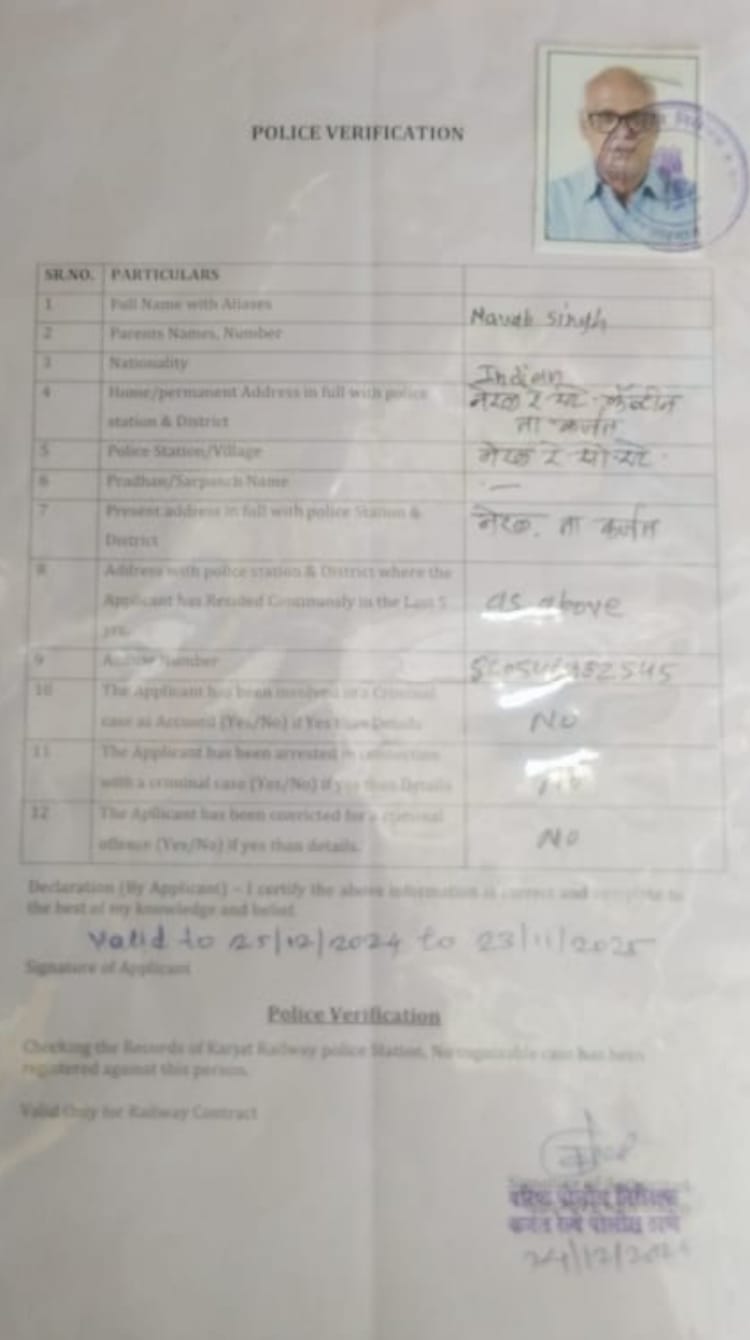 POLICE VERIFICATION
SR.NO. PARTICULARS
1 Full Name with Aliases
singh
2 Parents Names, Number
3 Nationality Indian
4 Home/permanent Address in full with police
station & District
ता कर्जत
5 Police Station/Village
6 Pradhan/Sarpanch Name -
7 Present address in full with police Station &
District
नेरळ. ता कर्जत
8 Address with police station & District where the
Applicant has Resided Commonly in the Last 5
yrs.
as above
9 Number
10 The Applicant has been involved in a Criminal
case as Accused (Yes/No) if Yes than Details
No
11 The Applicant has been arrested in connection
with a criminal case (Yes/No) if yes than Details
12 The Apllicant has been convicted for a criminal
offence (Yes/No) if yes than details.
No
Declaration (By Applicant) – I certify the above information is correct and complete to
the best of my knowledge and belief.
Valid to 25/12/2024 to 23/11/2025
Signature of Applicant
Police Verification
Checking the Records of Karjat Railway police Station, No cognizable case has been
registered against this person.
Valid Only for Railway Contract
वरिष्ठ पोलीस निरिक्षक
कर्जत रेल्वे पोलीस ठाणे